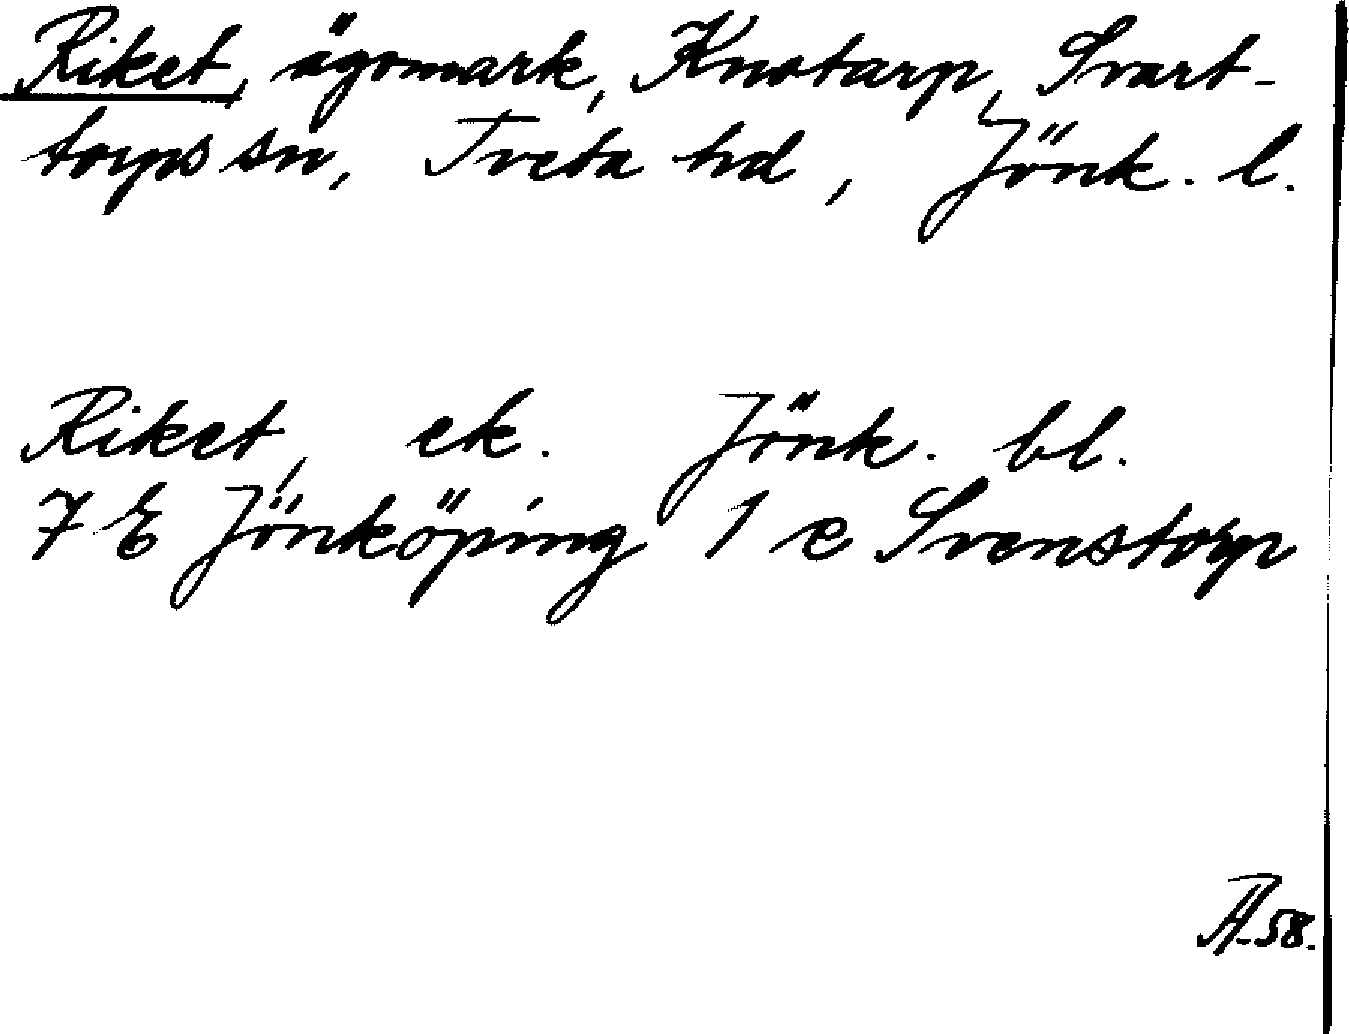 Riket, ägomark, Knotarp, Svart-
torps sn, Tveta hd, Jönk. l.
Riket, ek. Jönk. bl.
7 E Jönköping 1 e Svenstorp
58.